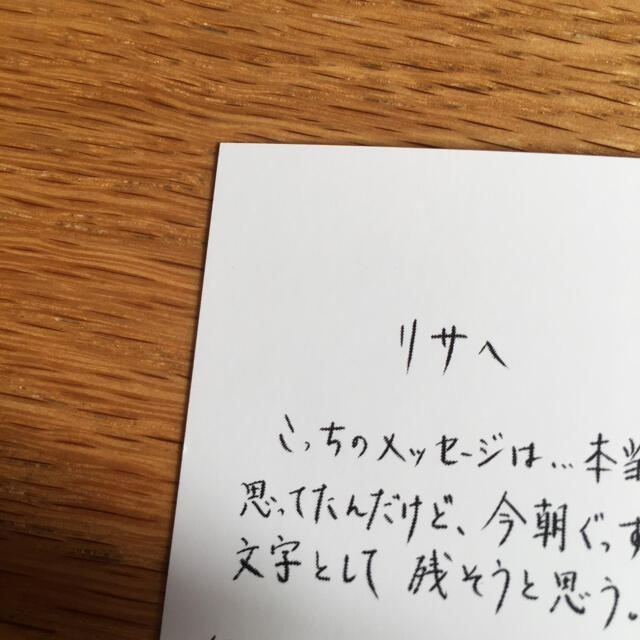 リサへ
こっちのメッセージは...本当
思ってたんだけど、今朝ぐっす
文字として残そうと思う。